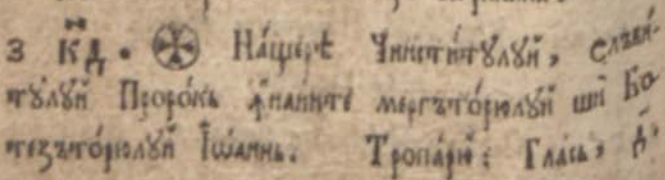 з к҃д · Нащерѣ Чинститꙋлꙋй, слъви-
тꙋлꙋй Пророкь ꙟнаинте мергъторюлꙋй ши Бо-
тезъторюлꙋй Іѡаннь. Тропарю: Гласъ, д҃.